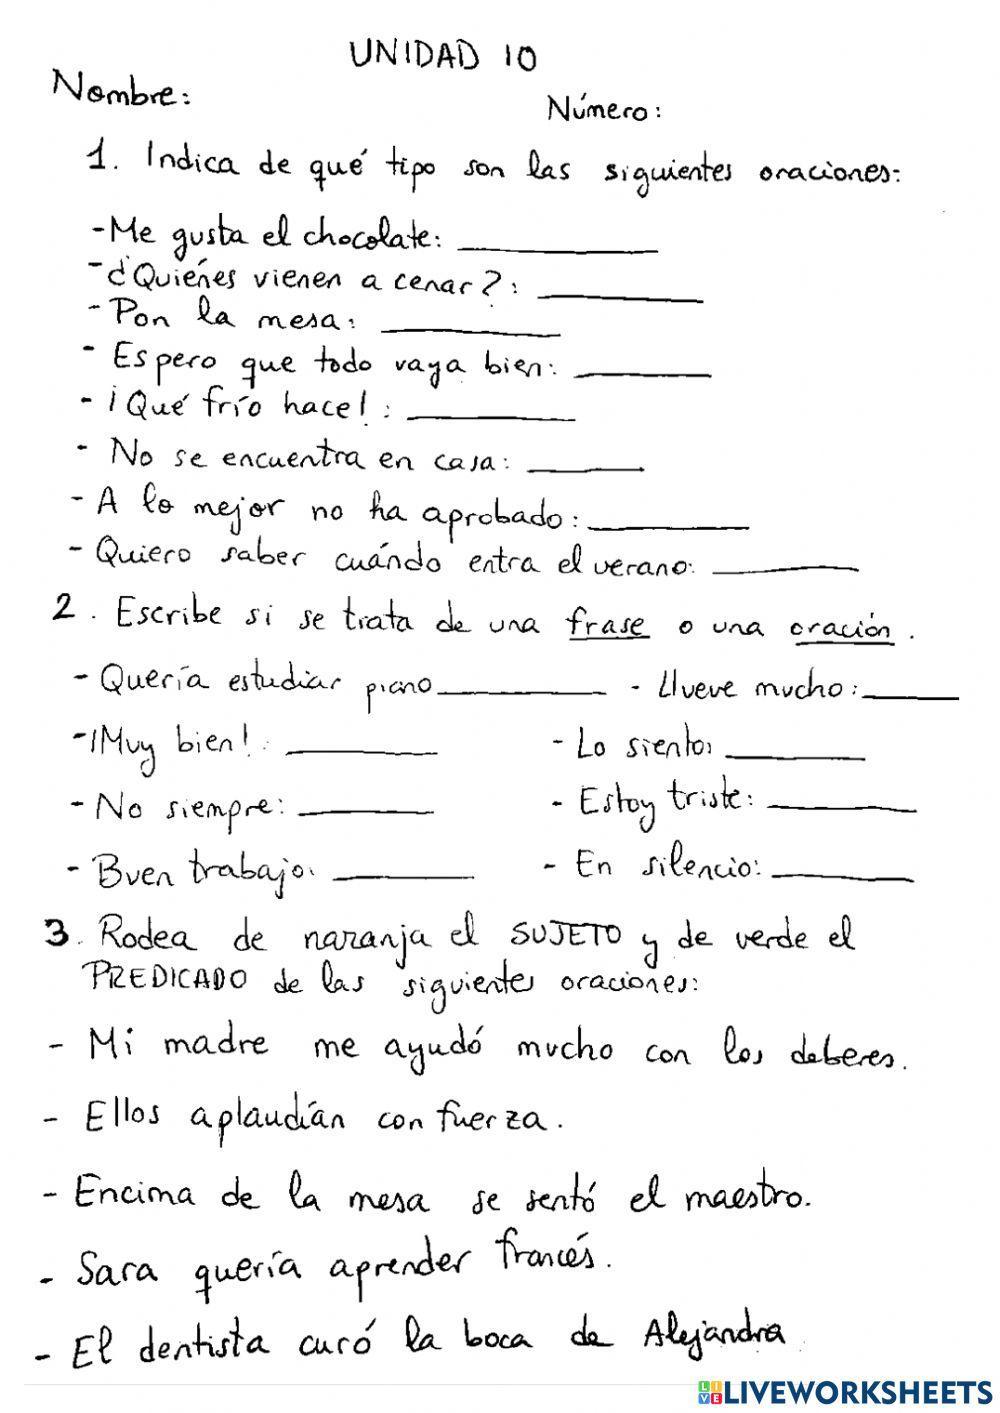 UNIDAD 10
Nombre:
Número:
1. Indica de qué tipo son las siguientes oraciones:
- Me gusta el chocolate: ________
- ¿Quiénes vienen a cenar?: ________
- Pon la mesa: ________
- Espero que todo vaya bien: ________
- ¡Qué frío hace!: ________
- No se encuentra en casa: ________
- A lo mejor no ha aprobado: ________
- Quiero saber cuándo entra el verano: ________
2. Escribe si se trata de una frase o una oración.
- Quería estudiar piano ________ - Llueve mucho: ________
- ¡Muy bien!: ________ - Lo siento: ________
- No siempre: ________ - Estoy triste: ________
- Buen trabajo: ________ - En silencio: ________
3. Rodea de naranja el SUJETO y de verde el
PREDICADO de las siguientes oraciones:
- Mi madre me ayudó mucho con los deberes.
- Ellos aplaudían con fuerza.
- Encima de la mesa se sentó el maestro.
- Sara quería aprender francés.
- El dentista curó la boca de Alejandra.
LIVEWORKSHEETS